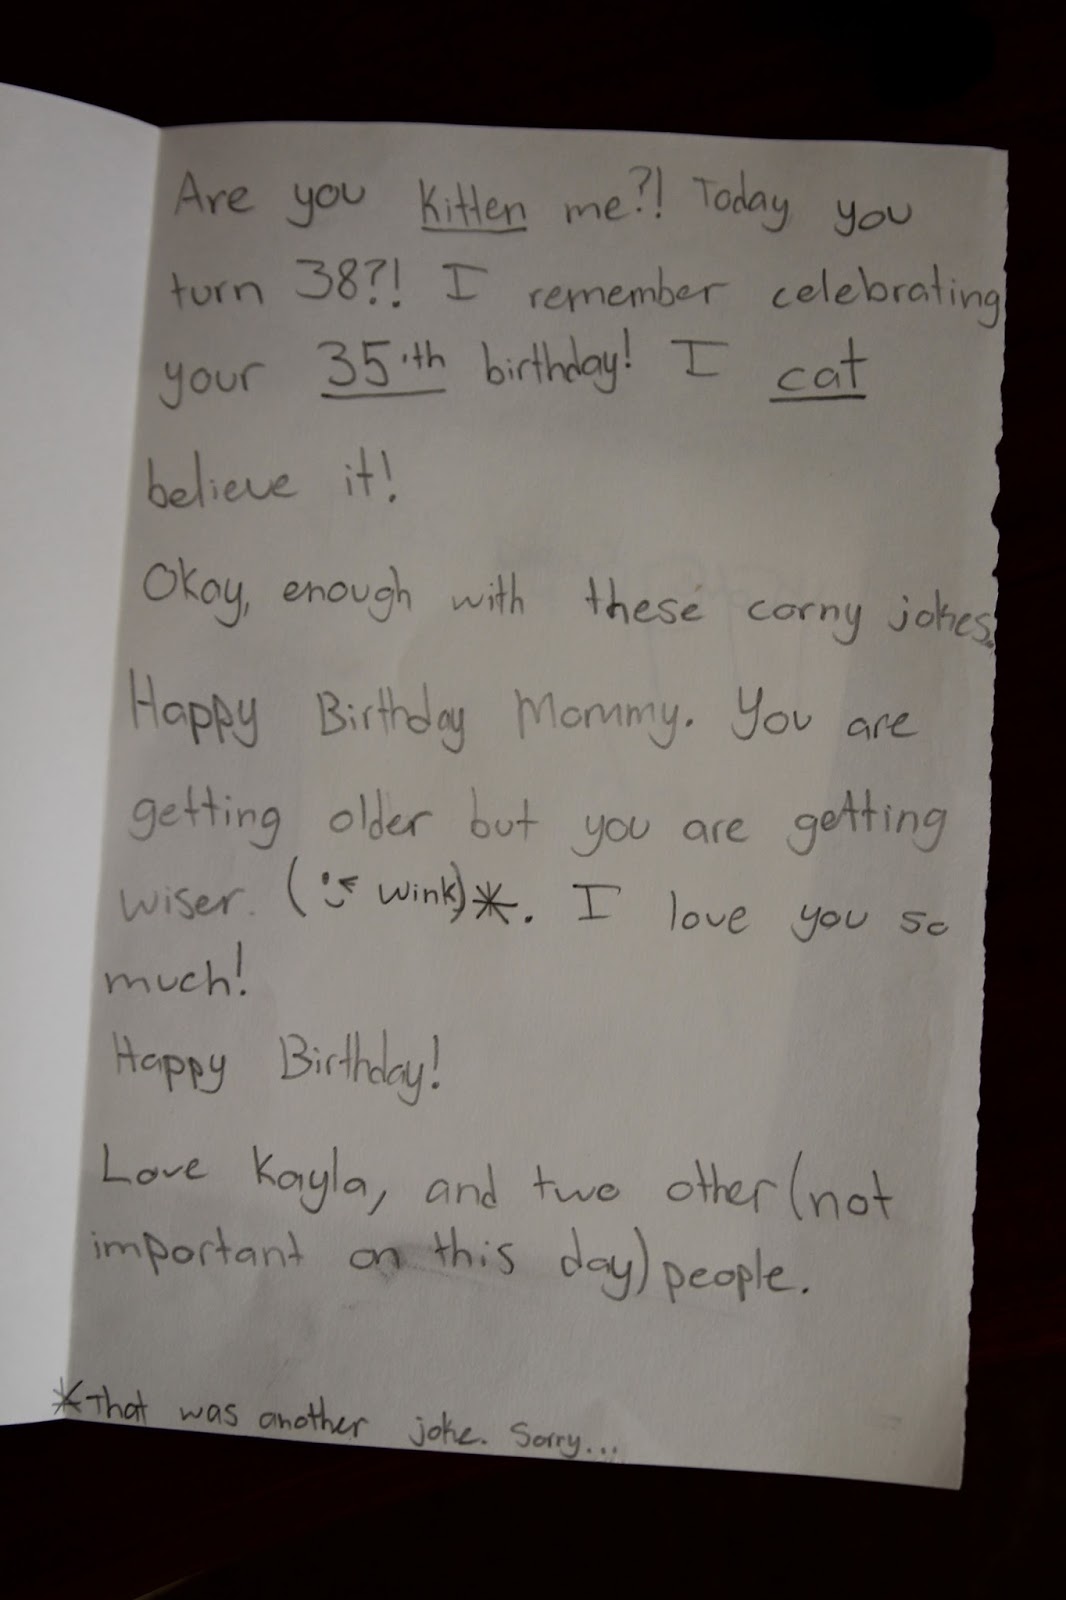 Are you Kitten me?! Today you
turn 38?! I remember celebrating
your 35'th birthday! I cat
believe it!
Okay, enough with these corny jokes.
Happy Birthday Mommy. You are
getting older but you are getting
wiser. ( wink)*. I love you so
much!
Happy Birthday!
Love Kayla, and two other (not
important on this day) people.
*That was another joke. Sorry...